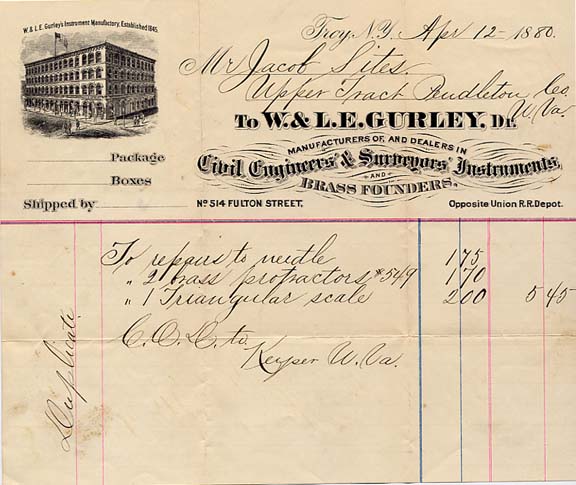 W. & L. E. Gurley's Instrument Manufactory, Established 1845.
Troy, N.Y. Apr 12 - 1880.
Mr Jacob Sites.
Upper Tract Pendleton Co.
W. Va.
To W. & L. E. GURLEY, Dr.
MANUFACTURERS OF, AND DEALERS IN
Civil Engineers' & Surveyors' Instruments,
AND
BRASS FOUNDERS,
Package
Boxes
Shipped by
No 514 FULTON STREET,
Opposite Union R.R. Depot.
To repairs to needle 1 75
" 2 brass protractors, #549 1 70
" 1 Triangular scale 2 00 5 45
C. O. D. to.
Keyser W. Va.
Duplicate